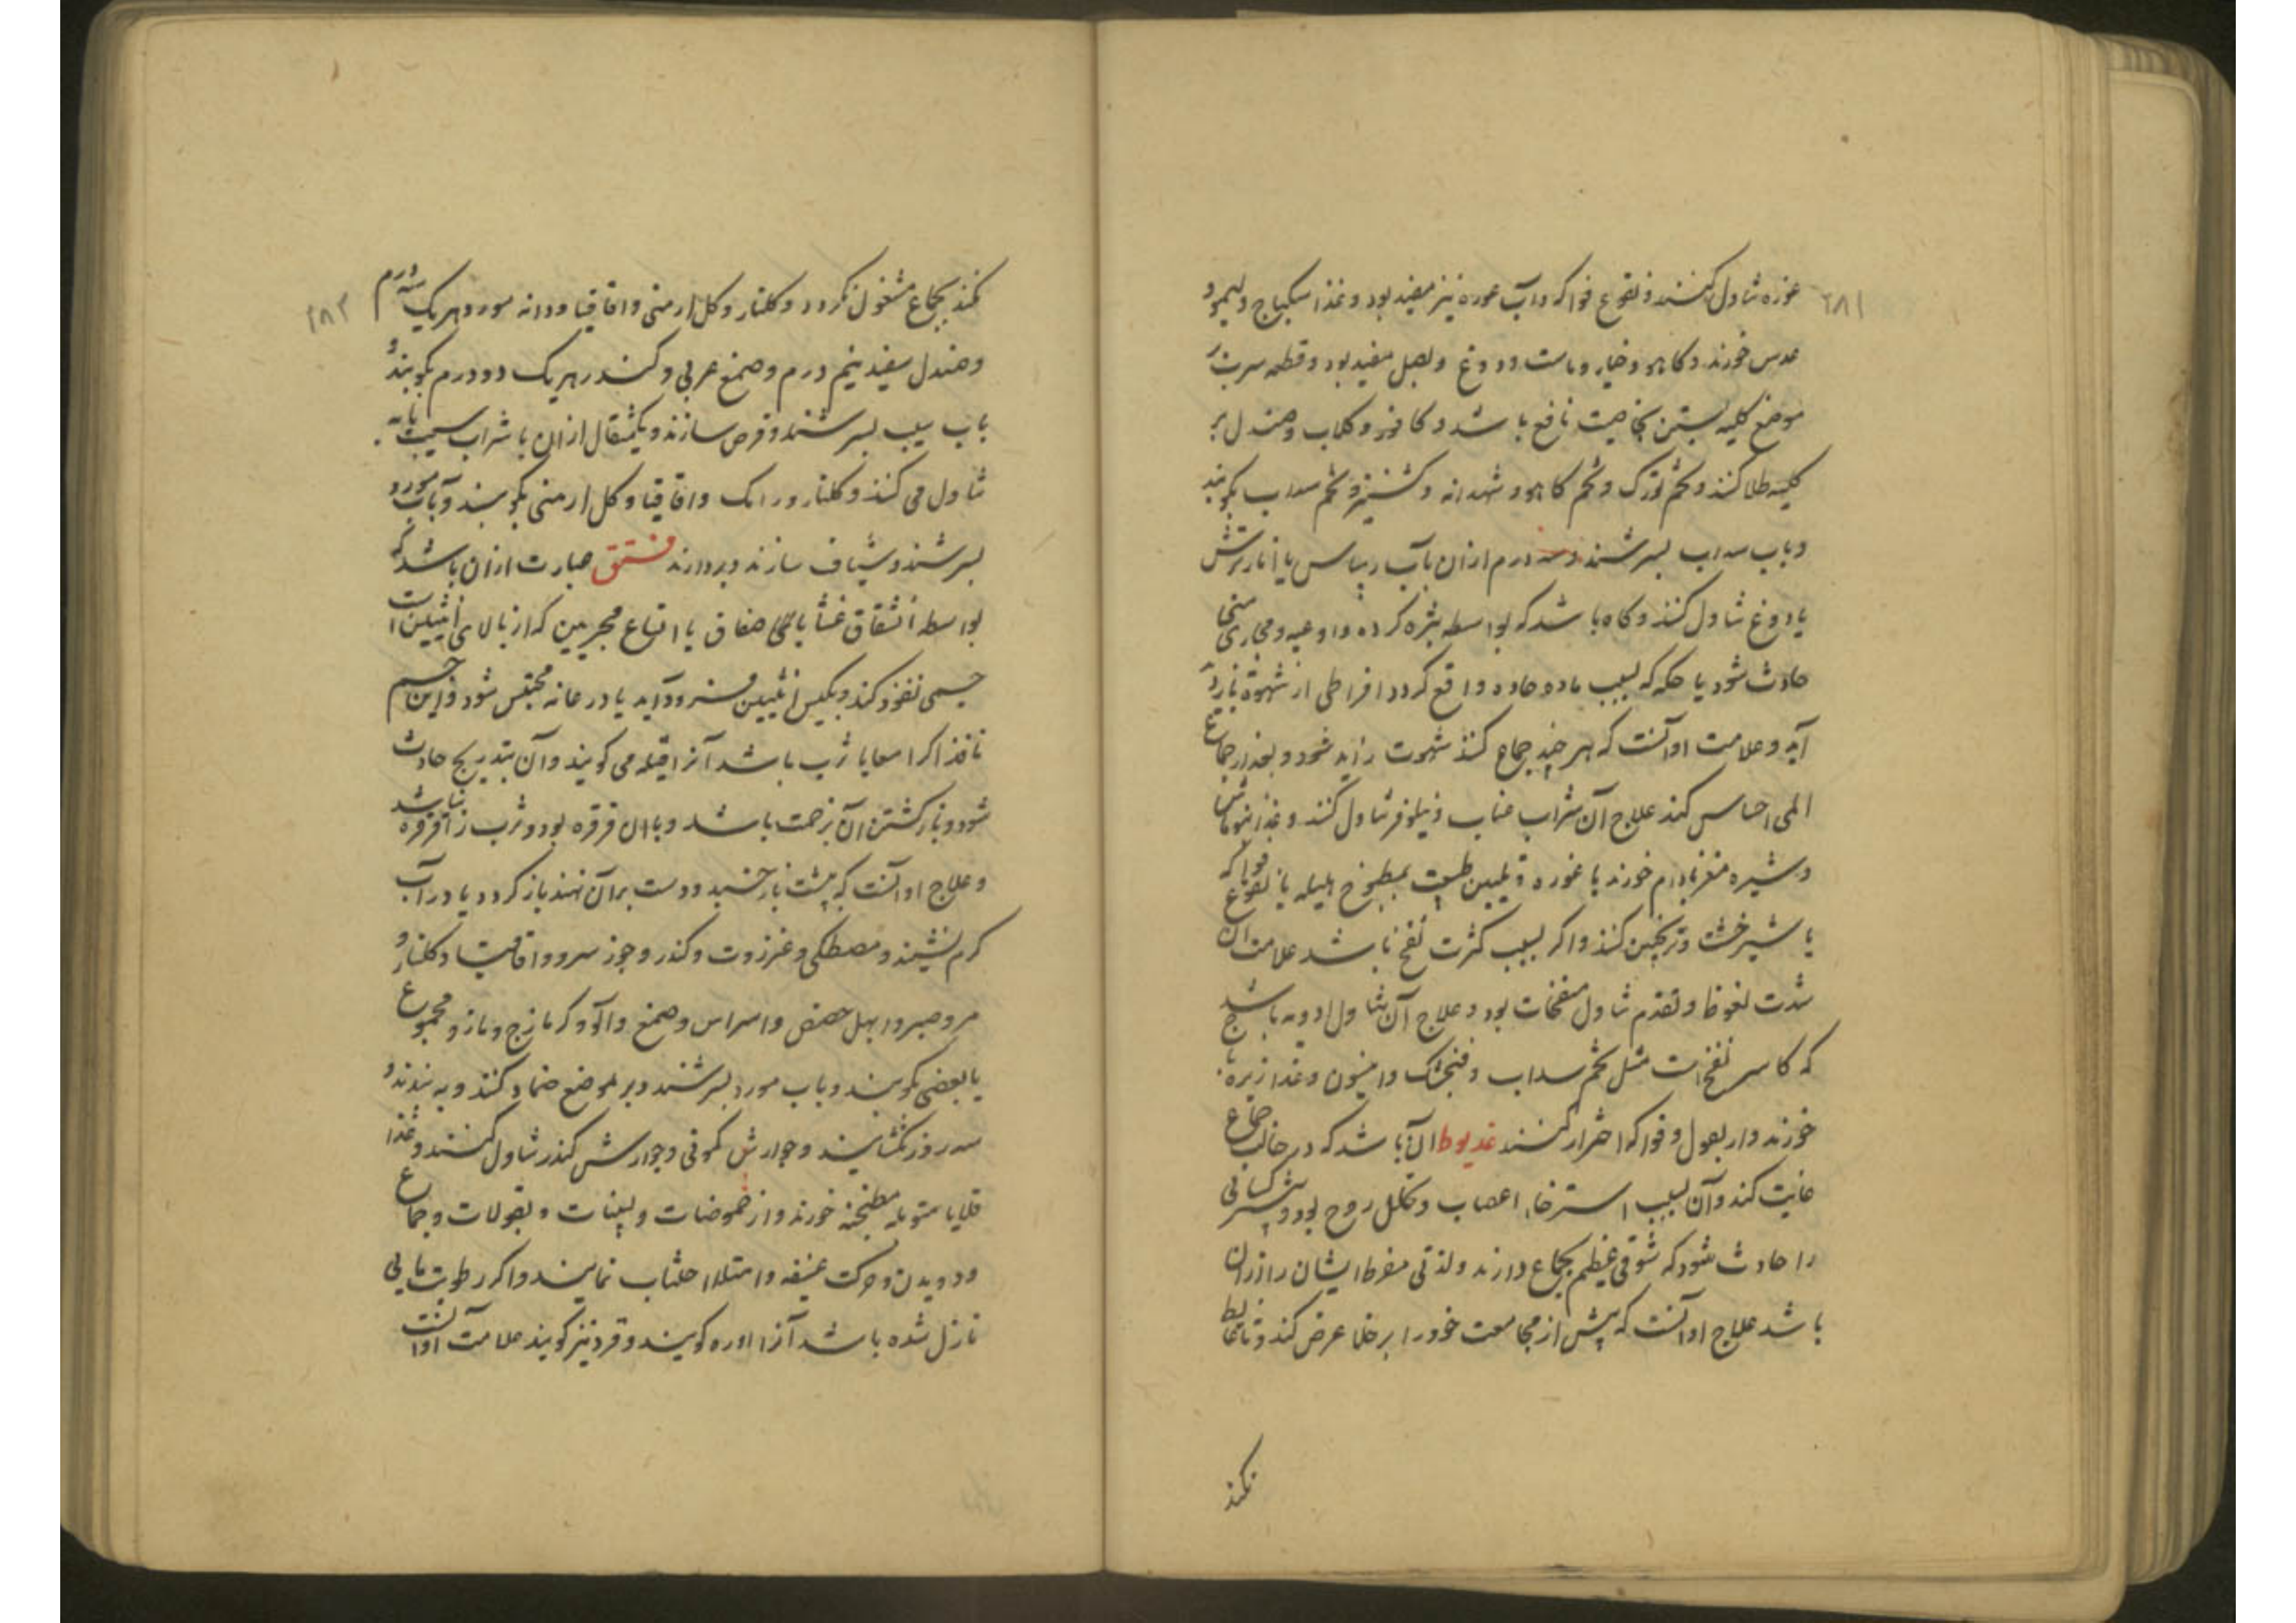 ۲۸۱
غوره تناول کنند و نقوع فواکه و آب غوره نیز مفید بود و غذا سکباج و لیمو و
عدس خورند و کاهو و خیار و ماست و دوغ و بصل مفید بود و قطعه سرب بر
موضع کلیه بستن بخاصیت نافع باشد و کافور و کلاب و صندل بر
کلیه طلا کنند و تخم تورک و تخم کاهو و شهدانه و کشنیز و تخم سداب بکوبند
و باب سداب بسرشند و سه درم ازان بآب ریباس یا انار ترش
یا دوغ تناول کنند و کاه باشد که بواسطه بثره کرده و اوعیه و مجاری منی
حادث شود یا حکه که بسبب ماده حاده واقع کردد افراطی از شهوة بازدید
آید و علامت او آنست که هر چند جماع کند شهوت زاید شود و بعد از جماع
المی احساس کند علاج آن شراب عناب و نیلوفر تناول کنند و غذا ماش
و شیره مغز بادام خورند با غوره و تلیین طبیعت بمطبوخ هلیله یا نقوع فواکه
یا شیرخشت و ترنجبین کنند و اگر بسبب کثرت نفخ باشد علامت آن
شدت نعوظ و تقدم تناول منفخات بود و علاج آن تناول ادویه باشد
که کاسر نفخ است مثل تخم سداب و فنجنکشت و انیسون و غذا زیره باج
خورند و از بقول و فواکه احتراز کنند عذیوط آن باشد که در حالت جماع
غایت کند و آن بسبب استرخاء اعصاب و تحلل روح بود و بیشتر کسانی
را حادث شود که شوقی عظیم بجماع دارند و لذتی مفرط ایشان را ازان
باشد علاج او آنست که پیش از مجامعت خود را بر خلا عرض کند و تا غایط
نکند
۲۸۲
نکند بجماع مشغول نکردد و کلنار و کل ارمنی و اقاقیا و دانه مورد هر یک سه درم
و صندل سفید نیم درم و صمغ عربی و کندر هر یک دو درم بکوبند و
باب سیب بسرشند و قرص سازند و یکمثقال ازان با شراب سیب یا به
تناول می کنند و کلنار و رامک و اقاقیا و کل ارمنی بکوبند و بآب مورد
بسرشند و شیاف سازند و بردارند فتق عبارت ازان باشد که
بواسطه انشقاق غشا یا صفاق یا اتساع مجریین که از بالای انثیین است
جسمی نفوذ کند و بکیس انثیین فرود آید یا در عانه محتبس شود و این جسم
نافذ اکر امعا یا ثرب باشد آنرا قیله می کویند و آن بتدریج حادث
شود و باز کشتن آن بزحمت باشد و باان قرقره بود و ثرب را قرقره نباشد
و علاج او آنست که بپشت باز خسبد و دست بر آن نهند باز کردد یا در آب
کرم نشیند و مصطکی و عنزروت و کندر و جوز سرو و اقاقیا و کلنار و
مر و صبر و ابهل حضض و اسراس و صمغ و آلو و کزمازج و مازو مجموع
یا بعضی بکوبند و باب مورد بسرشند و بر موضع ضماد کنند و به بندند و
سه روز نکشایند و جوارش کمونی و جوارش کندر تناول کنند و غذا
قلایا متوبله مطنجنه خورند و از حموضات و لبنات و بقولات و جماع
و دویدن و حرکت عنیفه و امتلا اجتناب نمایند و اکر رطوبت مایی
نازل شده باشد آنرا ادره کویند و قرو نیز کویند علامت او آنست